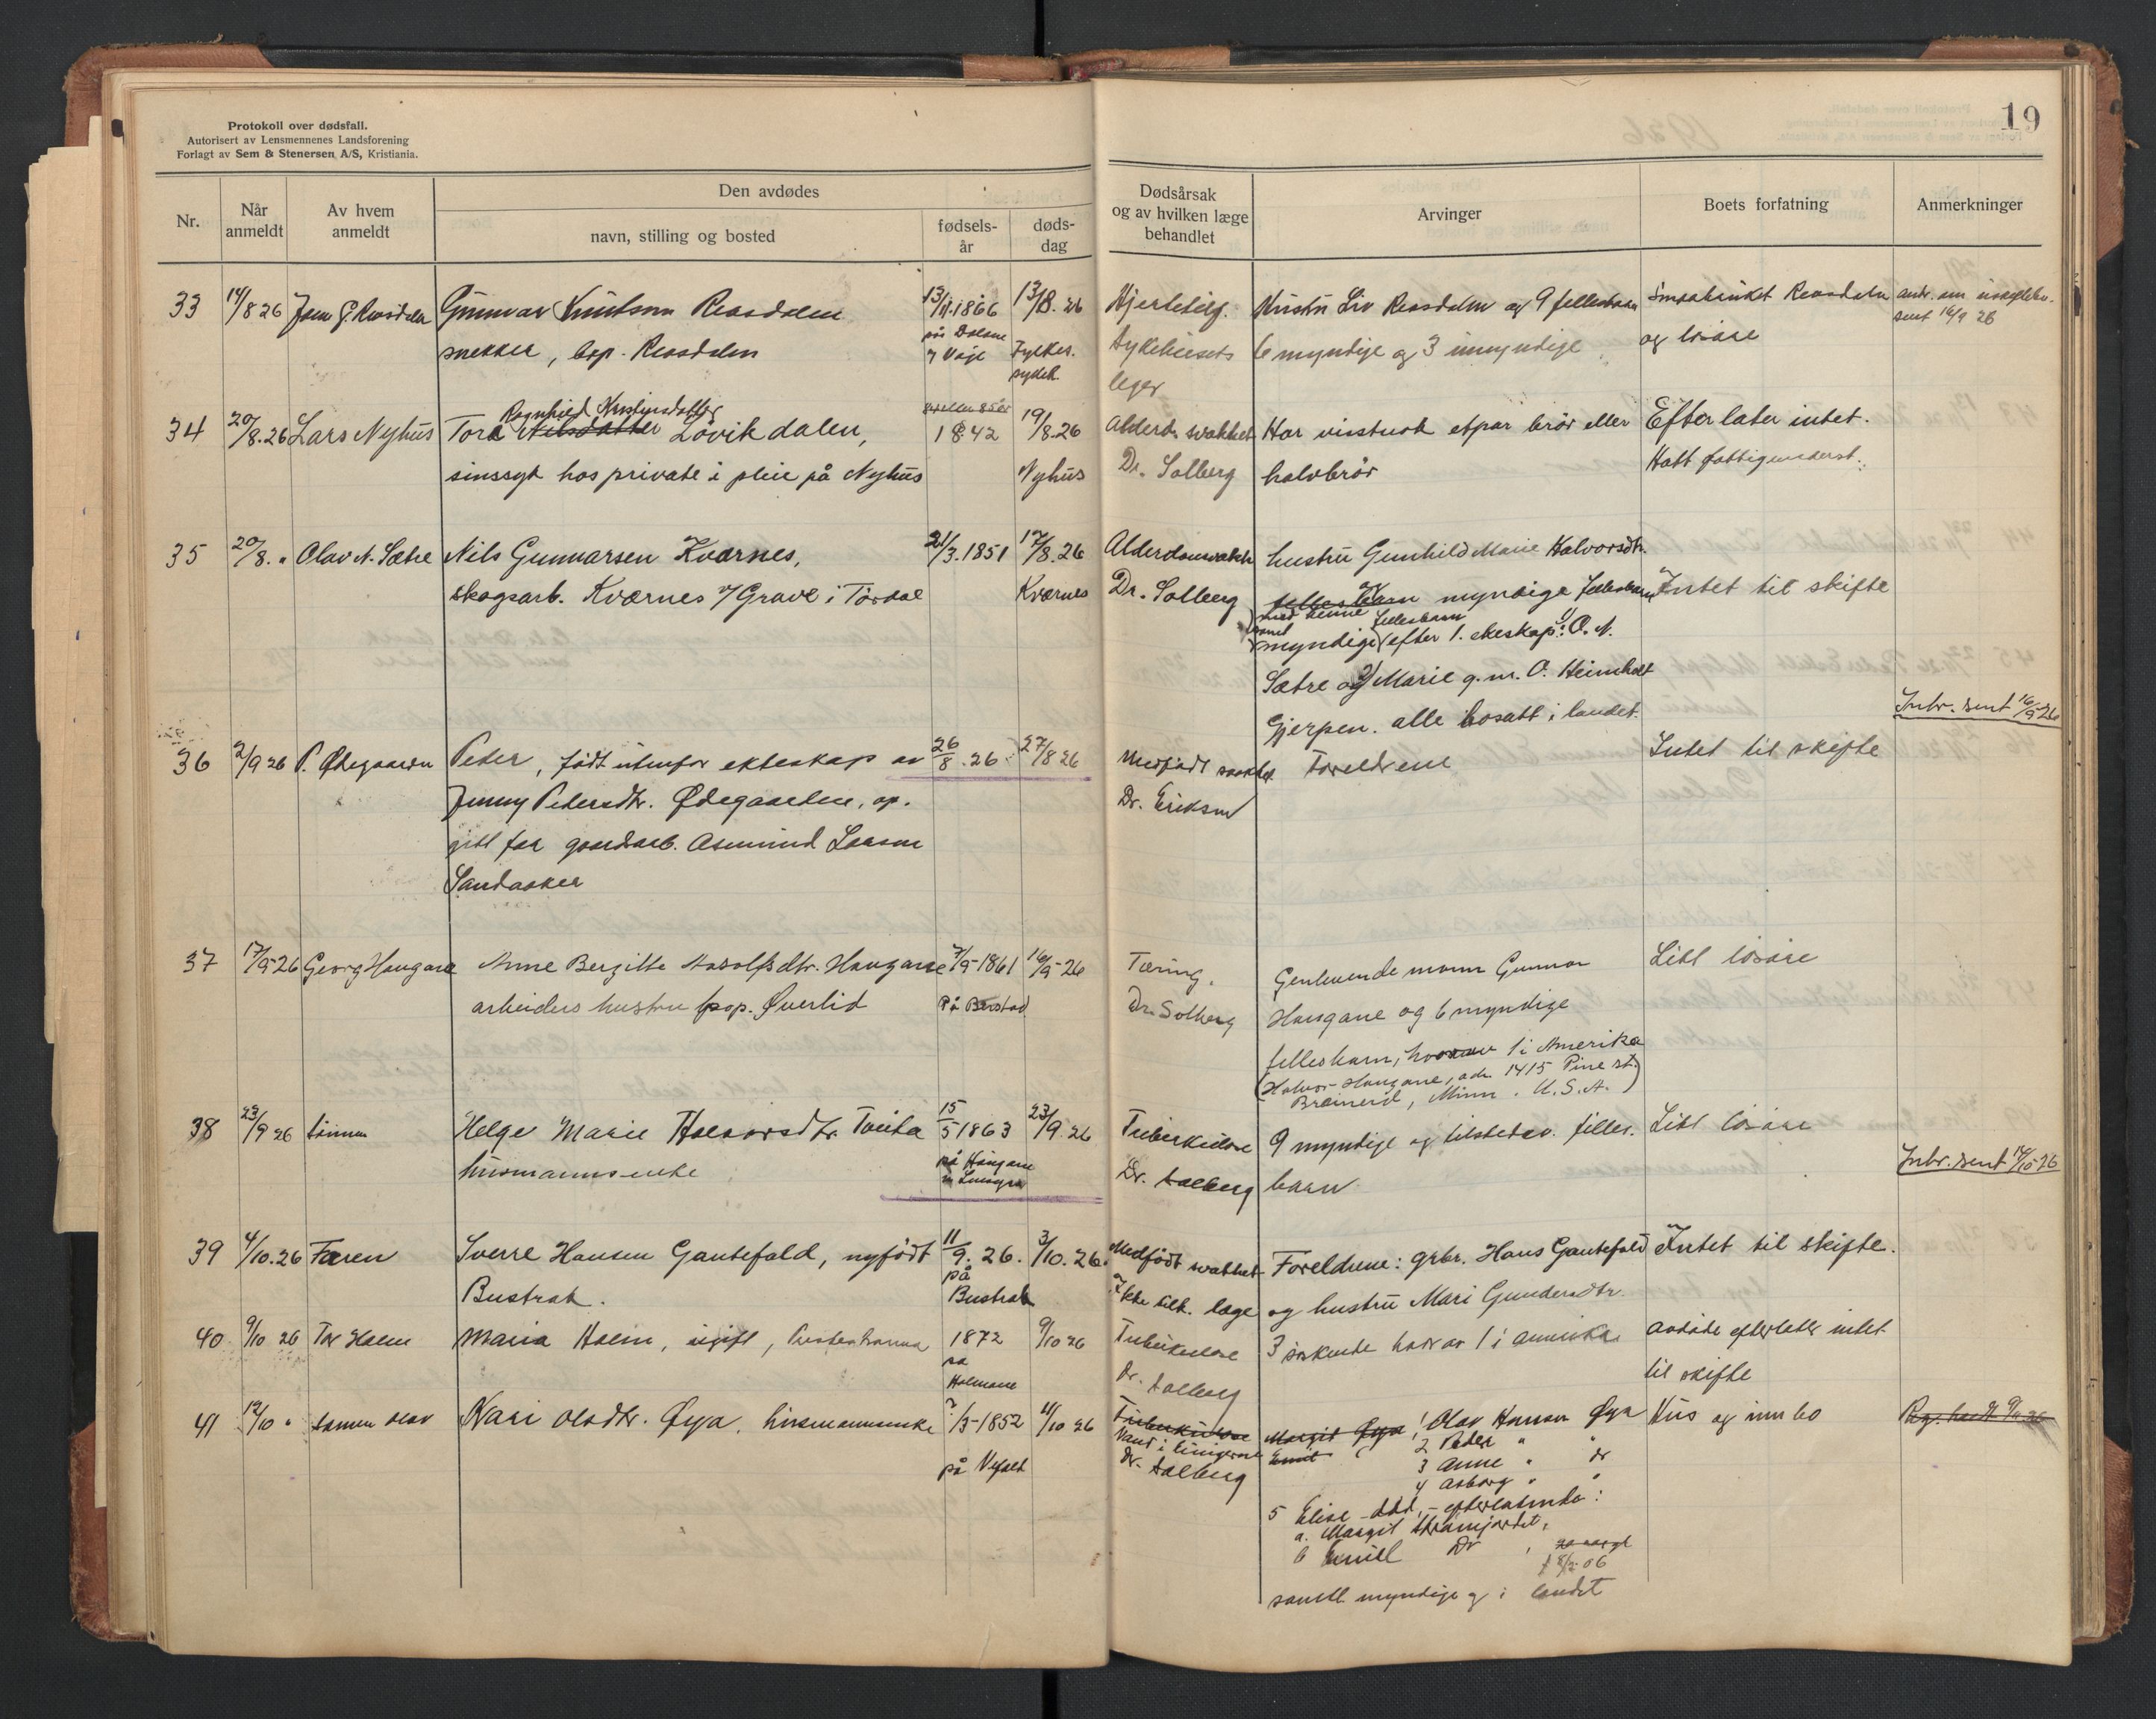 Protokoll over dødsfall.
Autorisert av Lensmennenes Landsforening
Forlagt av Sem & Stenersen A/S, Kristiania.
19
Nr.
Når anmeldt
Av hvem anmeldt
Den avdødes
navn, stilling og bosted
fødsels-år
døds-dag
Dødsårsak og av hvilken læge behandlet
Arvinger
Boets forfatning
Anmerkninger
33 14/8 26 Gunnar Knutsen 13/11.1866 13/8. 26 Hjertelig. Hustru Liv og 9 fellesbarn
snekker, 6 myndige og 3 umyndige og løsøre
sent 16/9 26
Ragnhild Kristensdatter
34 20/8.26 Lars Nyhus Tora Nilsdatter Løvikdalen, 1842 19/8.26 Alderd. svakhet Har visstnok etpar brør eller Efterlater intet.
sinssyk hos private i pleie på Nyhus Nyhus Dr. Solberg halvbrør Hatt fattigunderst.
35 20/8. " Olav N. Sætre Nils Gunnarsen Kvarnes, 21/3.1851 17/8.26 hustru Gunhild Marie Halvorsdtr.
skogsarb. Kværnes i Tørdal Kværnes Dr. Solberg felles barn myndige fellesbarn Intet til skifte
med denne fellesbarn
samt
myndige efter 1. ekteskap: 1) O. N.
Sætre og 2) Marie g.m. O. Heimholt
Gjerpen. alle bosatt i landet.
Inbr. sent 16/9 26
36 2/9 26 P. Ødegaarden Peter, født utenfor ekteskap av 26/8.26 27/8 26 Medfødt svakhet Foreldrene Intet til skifte
Jenny Petersdtr. Ødegaarden, op- Dr. Eriksen
gitt far gaardarb. Asmund Larsen
Sandaaker
37 17/9-26 Georg Haugane Anne Bergitte Adolfsdtr. Haugane 7/9-1861 16/9-26 Tæring. Gjenlevende mann Gunnar Litt løsøre
arbeiders hustru Øverlid På Dr. Solberg Haugane og 6 myndige
fellesbarn, hvorav 1 i Amerika
(Halvor Haugane, adr. 1415 Pine st.
Brainerd, Minn. U.S.A.)
38 23/9 26 sønnen Helge Marie Halvorsdtr. Tveita 15/5 1863 23/9.26 Tuberkulose 9 myndige og tilstedev. felles- Litt løsøre
husmannsenke på Haugane Dr. Solberg barn
Inbr. sent 14/10 26
39 4/10.26 Faren Sverre Hansen Gautefald, nyfødt 11/9.26. 3/10.26. Medfødt svakhet Foreldrene: grbr. Hans Gautefald Intet til skifte.
Bustrak. på Bustrak Ikke tilk. læge og hustru Mari Gundersdtr.
40 9/10 26 Tor Holm Maria Holm, ugift, 1872 9/10 26 Tuberkulose 3 søskende hvorav 1 i Amerika Avdøde efterlater intet
på Holmane Dr. Solberg til skifte
41 12/10 " sønnen Olav Kari Olsdtr. Øya. husmannsenke 7/5-1852 11/10 26 Tuberkulose Margit Øya 1 Olav Hansen Øya Hus og innbo
Vand i lungerne Emil 2 Peder " "
på Dr. Solberg 3 Anne " dr
4 Asborg " "
5 Elise - død, - efterlatende:
a. Margit
b Emil Do
f 8/2 06
samtl. myndige og i landet